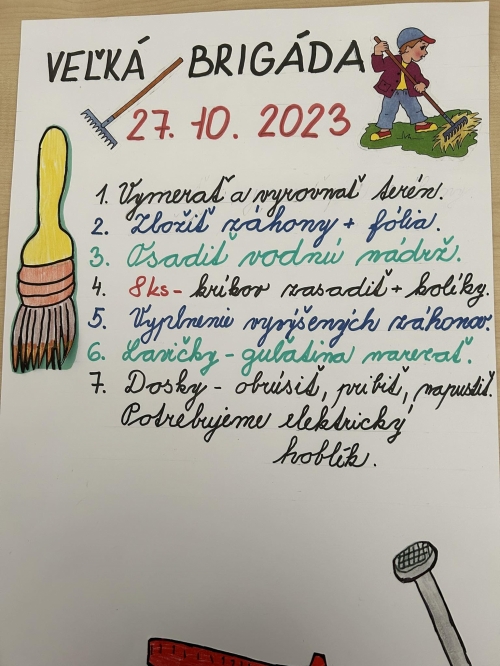 VEĽKÁ BRIGÁDA
27. 10. 2023
1. Vymerať a vyrovnať terén.
2. Zložiť záhony + fólia.
3. Osadiť vodnú nádrž.
4. 8ks - kríkov zasadiť + kolíky.
5. Vyplnenie vyvýšených záhonov.
6. Lavičky - guľatina narezať.
7. Dosky - obrúsiť, pribiť, napustiť.
Potrebujeme elektrický
hoblík.